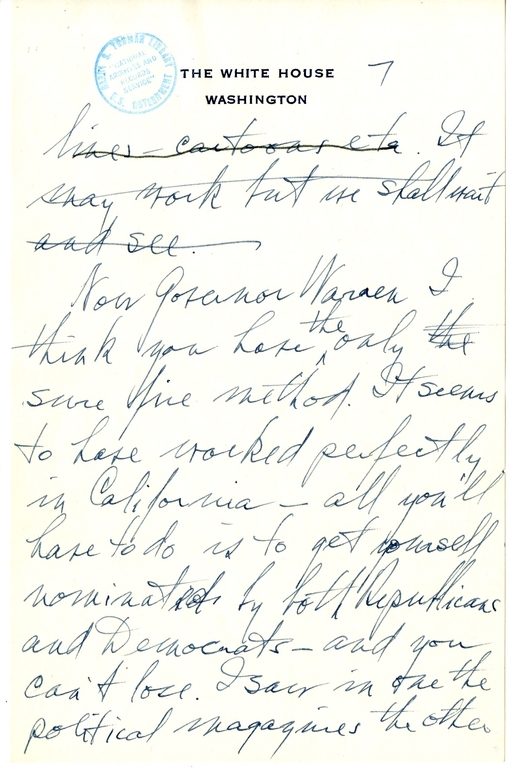 HARRY S. TRUMAN LIBRARY
"NATIONAL
ARCHIVES AND
RECORDS
SERVICE"
U.S. GOVERNMENT
THE WHITE HOUSE
WASHINGTON
7
lines - cartoons etc. It
may work but we shall wait
and see.
Now Governor Warren I
think you have the only the
sure fire method. It seems
to have worked perfectly
in California - all you'll
have to do is to get yourself
nominated by both Republicans
and Democrats - and you
can't lose. I saw in one the
political magazines the other